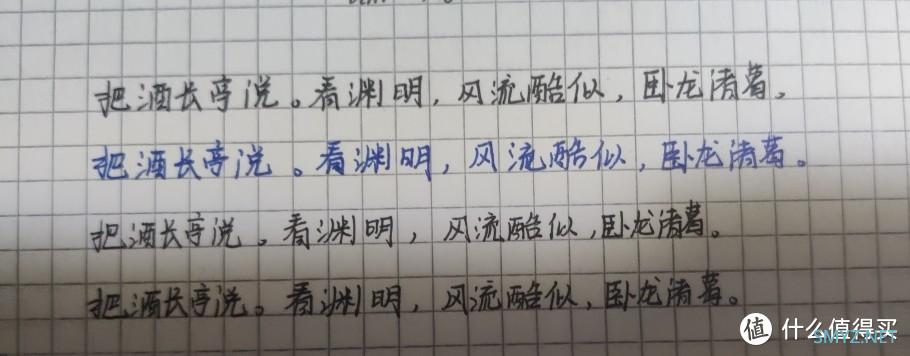 把酒长亭说。看渊明，风流酷似，卧龙诸葛。
把酒长亭说。看渊明，风流酷似，卧龙诸葛。
把酒长亭说。看渊明，风流酷似，卧龙诸葛。
把酒长亭说。看渊明，风流酷似，卧龙诸葛。
值 什么值得买
SMYZ.NET